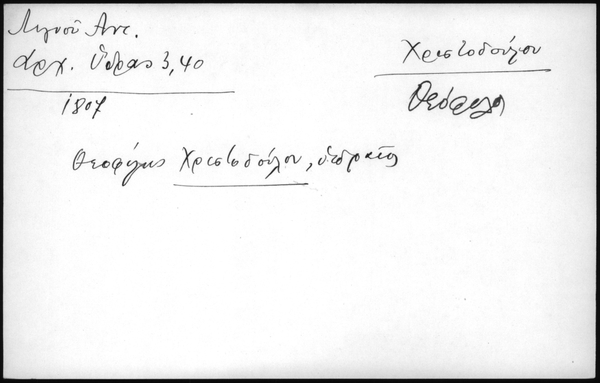 Λιγνοῦ Αντ.
Αρχ. Ὕδρας 3,40
1807
Χριστοδούλου
Θεόφιλος
Θεοφίλης Χριστοδούλου, ὑδραῖος